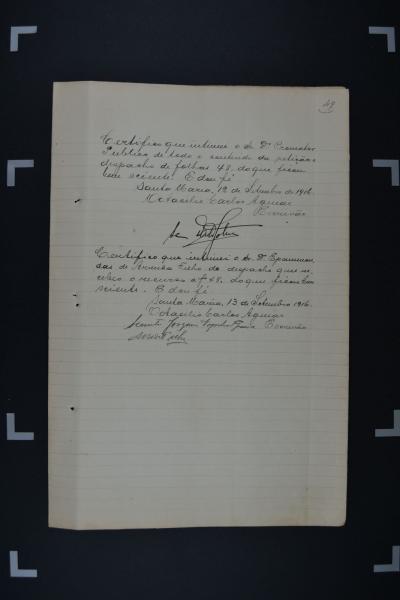 49
Certifico que intimei o Sr. Dr. Promotor
Publico de todo o conteudo da petição e
despacho de folhas 48, do que ficou
bem sciente. E dou fé.
Santa Maria, 12 de Setembro de 1916.
Octacilio Carlos Aguiar
Escrivão
Certifico que intimei o Sr. Dr. Epaminon
das de Arruda Filho do despacho que re
cebeu o recurso a f. 48, do que ficou bem
sciente. E dou fé.
Santa Maria, 13 de Setembro 1916.
Octacilio Carlos Aguiar
Escrivão